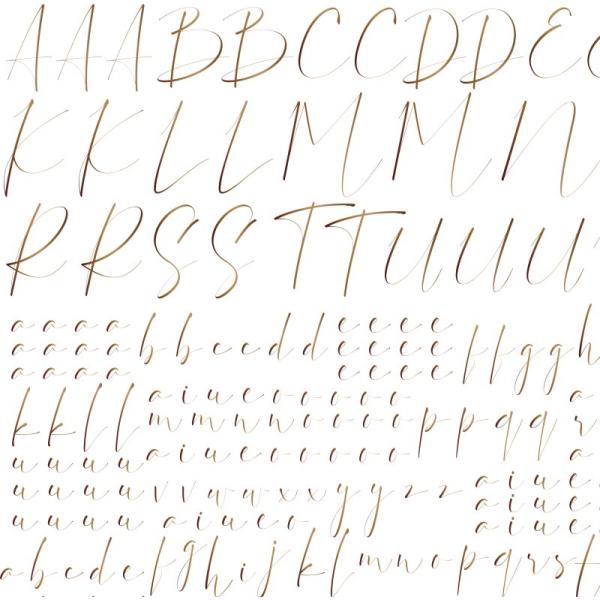 A A A B B C C D D E
K K L L M M N
R R S S T T U U U
a a a a b b c c d d e e e e f f g g h
a a a a e e e e
a a a a e e e e
k k l l a i u e o o o o o a
m m n n o o o o o p p q q r
u u u u a i u e o o o o o a
u u u u v v w w x x y y z z a i u e
u u u u a i u e o a i u e
a b c d e f g h i j k l m n o p q r s t